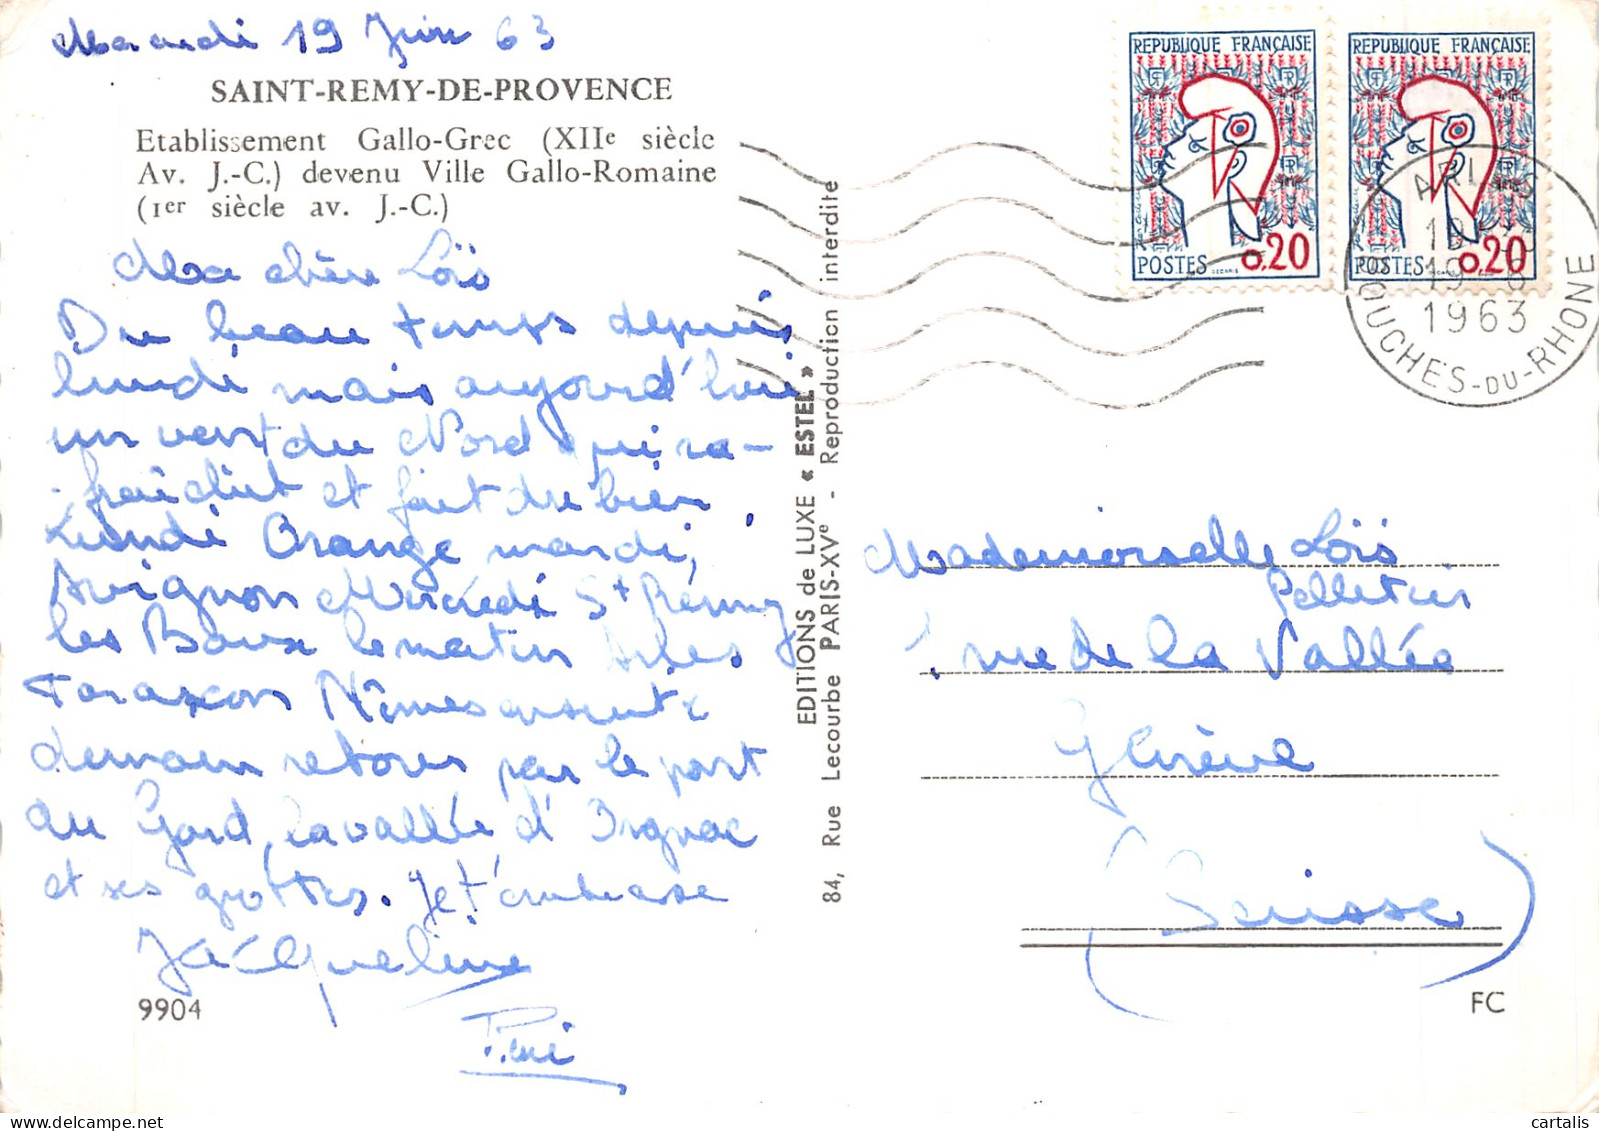 Mardi 19 Juin 63
SAINT-REMY-DE-PROVENCE
Etablissement Gallo-Grec (XIIe siècle
Av. J.-C.) devenu Ville Gallo-Romaine
(1er siècle av. J.-C.)
Ma chère Loïs
Du beau temps depuis
lundi mais aujourd'hui
un vent du Nord qui ra-
fraîchit et fait du bien
Lundi Orange mardi,
Avignon Mercredi St Rémy
les Baux le matin Arles
Tarascon Nîmes ensuite
demain retour par le pont
du Gard, la vallée d'Orgnac
et ses grottes. Je t'embrasse
Jacqueline
9904
EDITIONS de LUXE « ESTEL »
84, Rue Lecourbe PARIS-XVe - Reproduction interdite
REPUBLIQUE FRANÇAISE
POSTES 0,20
REPUBLIQUE FRANÇAISE
POSTES 0,20
ARLES
19-6
1963
BOUCHES-DU-RHONE
Mademoiselle Loïs
Pelletier
rue de la Vallée
Genève
(Suisse)
FC
cartalis